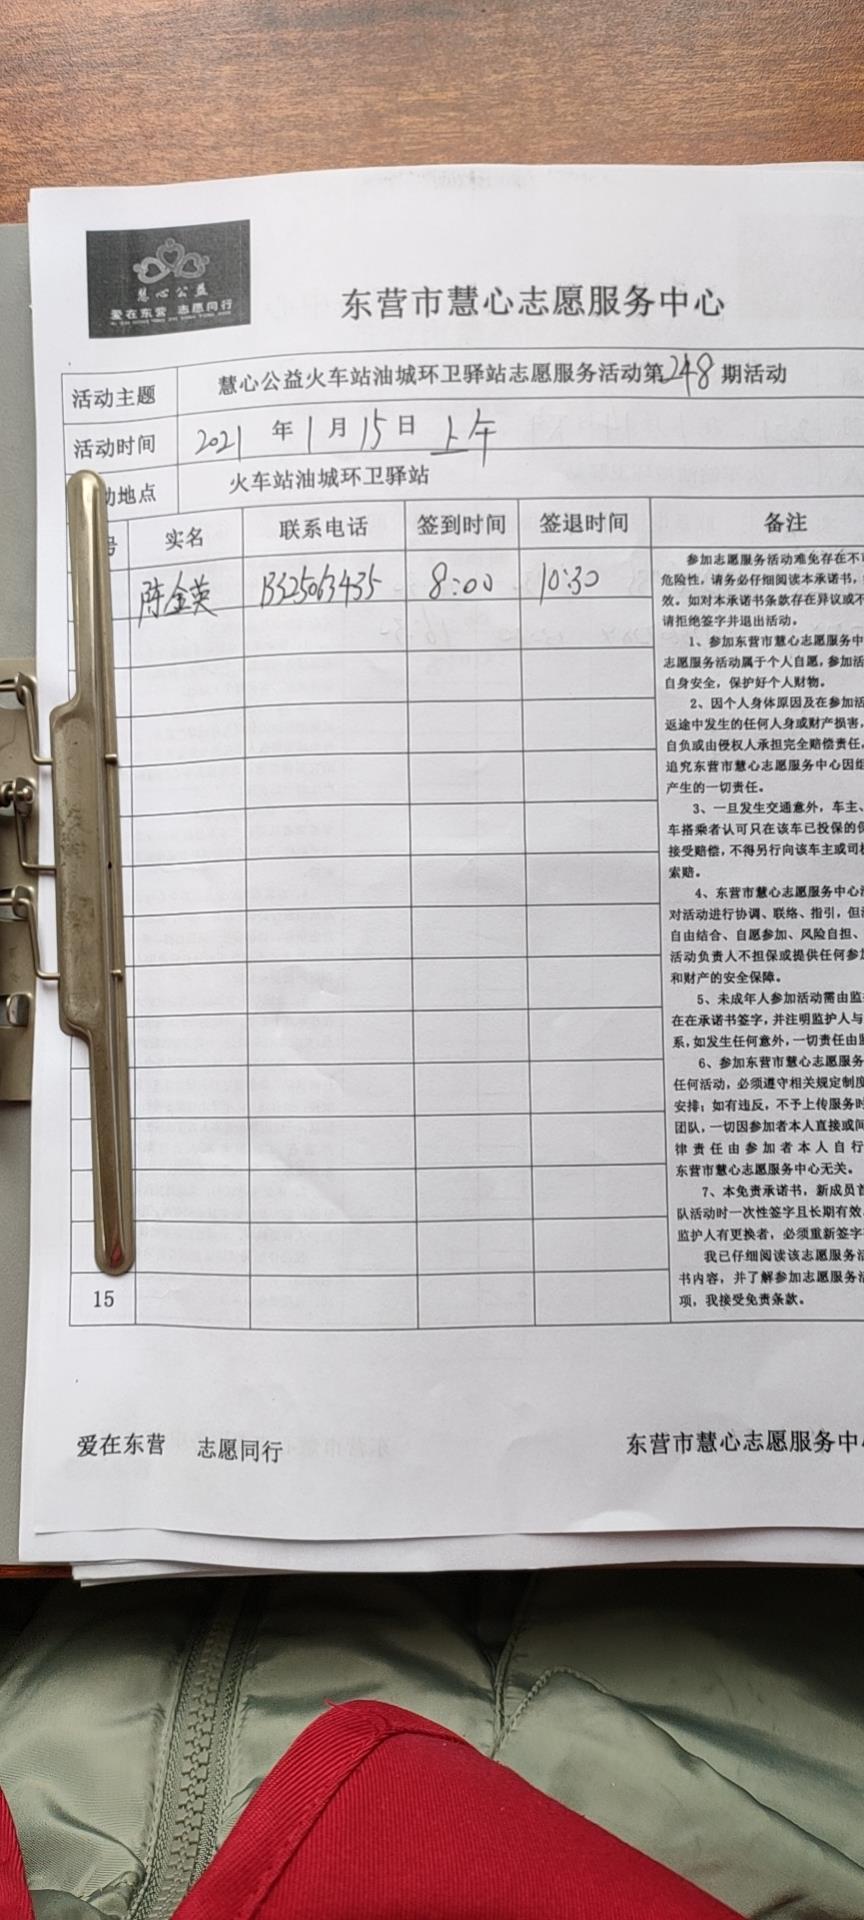 慧心公益
爱在东营 志愿同行
东营市慧心志愿服务中心
活动主题 慧心公益火车站油城环卫驿站志愿服务活动第248期活动
活动时间 2021年1月15日 上午
动地点 火车站油城环卫驿站
号 实名 联系电话 签到时间 签退时间 备注
陈金英 13325063435 8:00 10:30
参加志愿服务活动难免存在不可
危险性，请务必仔细阅读本承诺书，
效。如对本承诺书条款存在异议或不
请拒绝签字并退出活动。
1、参加东营市慧心志愿服务中
志愿服务活动属于个人自愿，参加活
自身安全，保护好个人财物。
2、因个人身体原因及在参加活
返途中发生的任何人身或财产损害，
自负或由侵权人承担完全赔偿责任，
追究东营市慧心志愿服务中心因组
产生的一切责任。
3、一旦发生交通意外，车主、
车搭乘者认可只在该车已投保的保
接受赔偿，不得另行向该车主或司机
索赔。
4、东营市慧心志愿服务中心活
对活动进行协调、联络、指引，但
自由结合、自愿参加、风险自担、
活动负责人不担保或提供任何参加
和财产的安全保障。
5、未成年人参加活动需由监
在在承诺书签字，并注明监护人与
系，如发生任何意外，一切责任由监
6、参加东营市慧心志愿服务
任何活动，必须遵守相关规定制度
安排；如有违反，不予上传服务时
团队，一切因参加者本人直接或间
律责任由参加者本人自行
东营市慧心志愿服务中心无关。
7、本免责承诺书，新成员首
队活动时一次性签字且长期有效
监护人有更换者，必须重新签字
我已仔细阅读该志愿服务活
书内容，并了解参加志愿服务活
项，我接受免责条款。
15
爱在东营 志愿同行 东营市慧心志愿服务中心